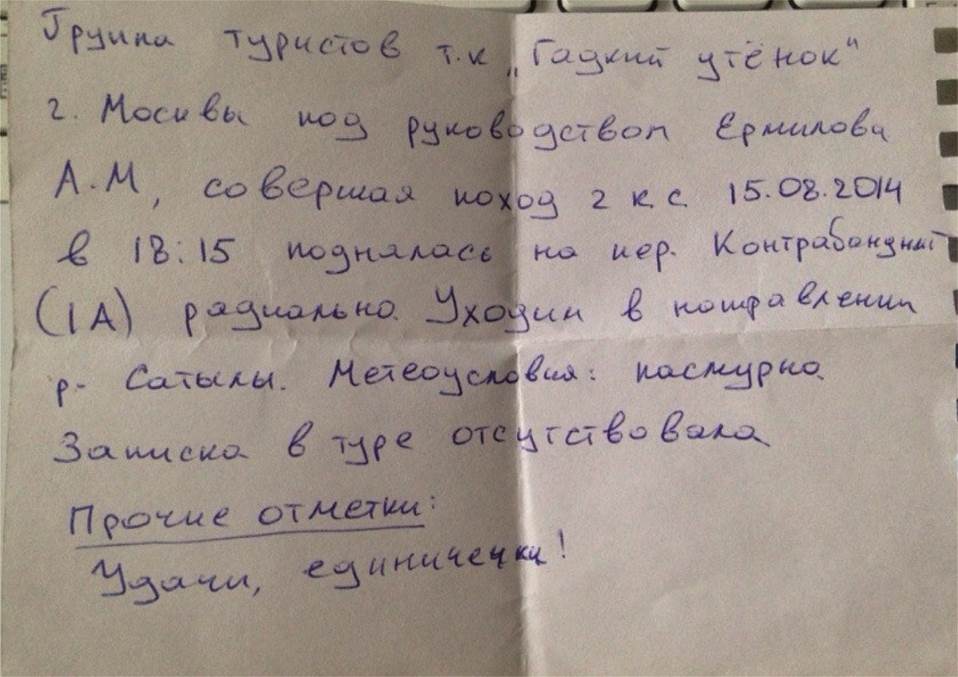 Группа туристов т.к „Гадкий утёнок“
г. Москвы под руководством Ермилова
А.М, совершая поход 2 к.с. 15.08.2014
в 18:15 поднялась на пер. Контрабандный
(1А) радиально. Уходим в направлении
р. Сатылы. Метеоусловия: пасмурно.
Записка в туре отсутствовала
Прочие отметки:
Удачи, единичечки!